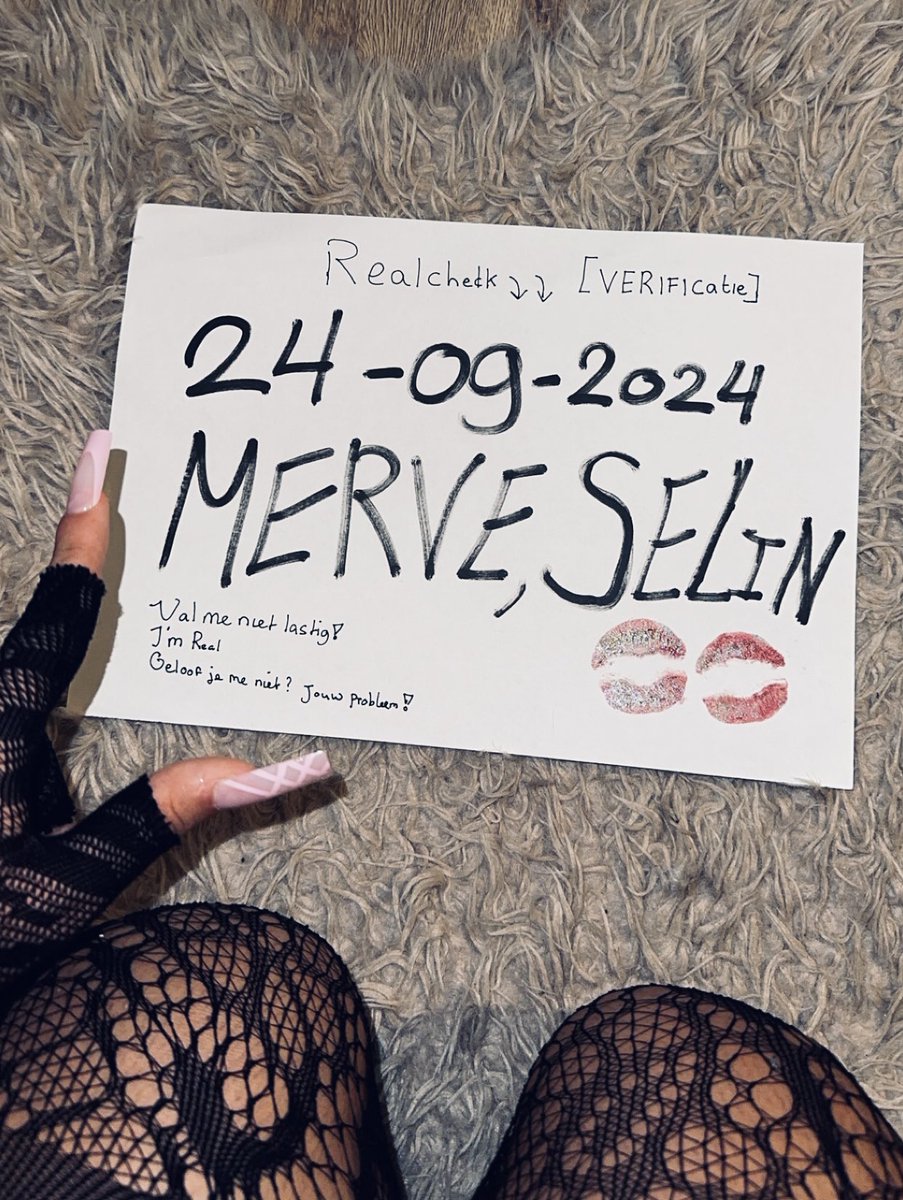 Realcheck ↴↴ [VERIFICatie]
24-09-2024
MERVE, SELIN
Val me niet lastig!
I'm Real
Geloof je me niet? Jouw probleem!